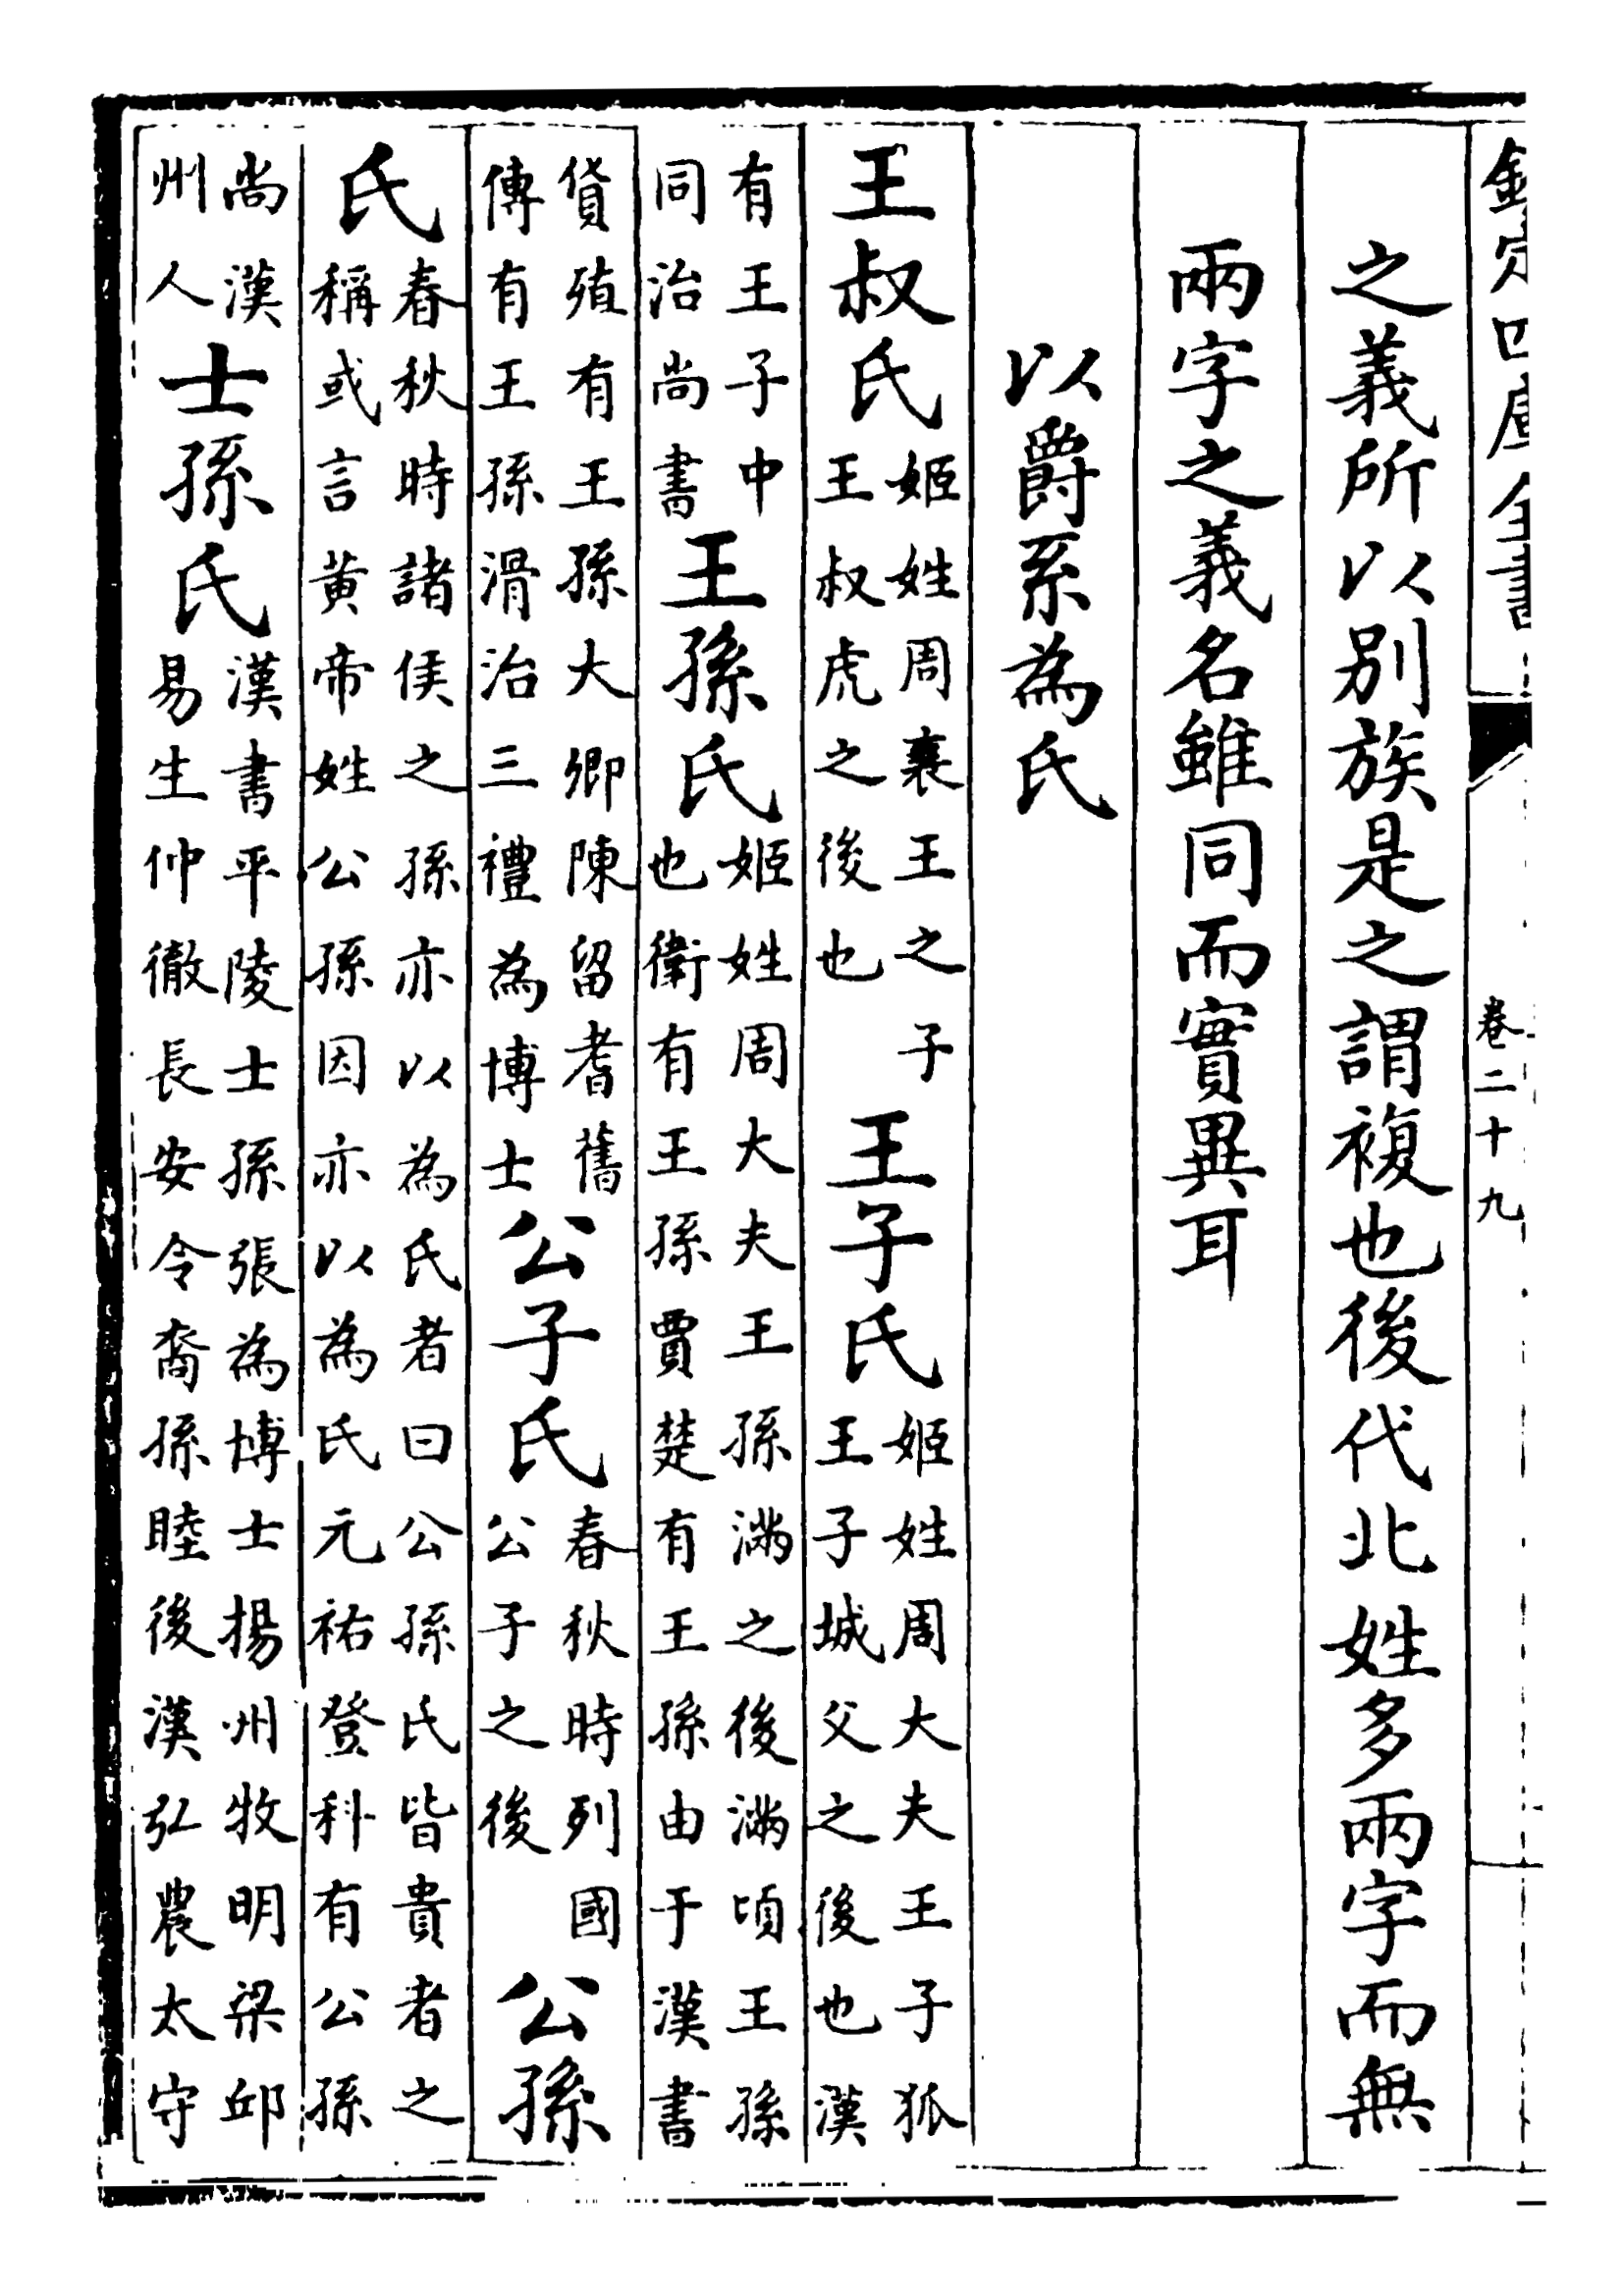 欽定四庫全書
卷二十九
之義所以別族是之謂複也後代北姓多兩字而無
兩字之義名雖同而實異耳
以爵系為氏
王叔氏
姬姓周襄王之子
王叔虎之後也
王子氏
姬姓周大夫王子狐
王子城父之後也漢
有王子中
同治尚書
王孫氏
姬姓周大夫王孫滿之後滿頃王孫
也衛有王孫賈楚有王孫由于漢書
貨殖有王孫大卿陳留耆舊
傳有王孫滑治三禮為博士
公子氏
春秋時列國
公子之後
公孫
氏
春秋時諸侯之孫亦以為氏者曰公孫氏皆貴者之
稱或言黃帝姓公孫因亦以為氏元祐登科有公孫
尚漢
州人
士孫氏
漢書平陵士孫張為博士揚州牧明梁邱
易生仲徹長安令裔孫睦後漢弘農太守